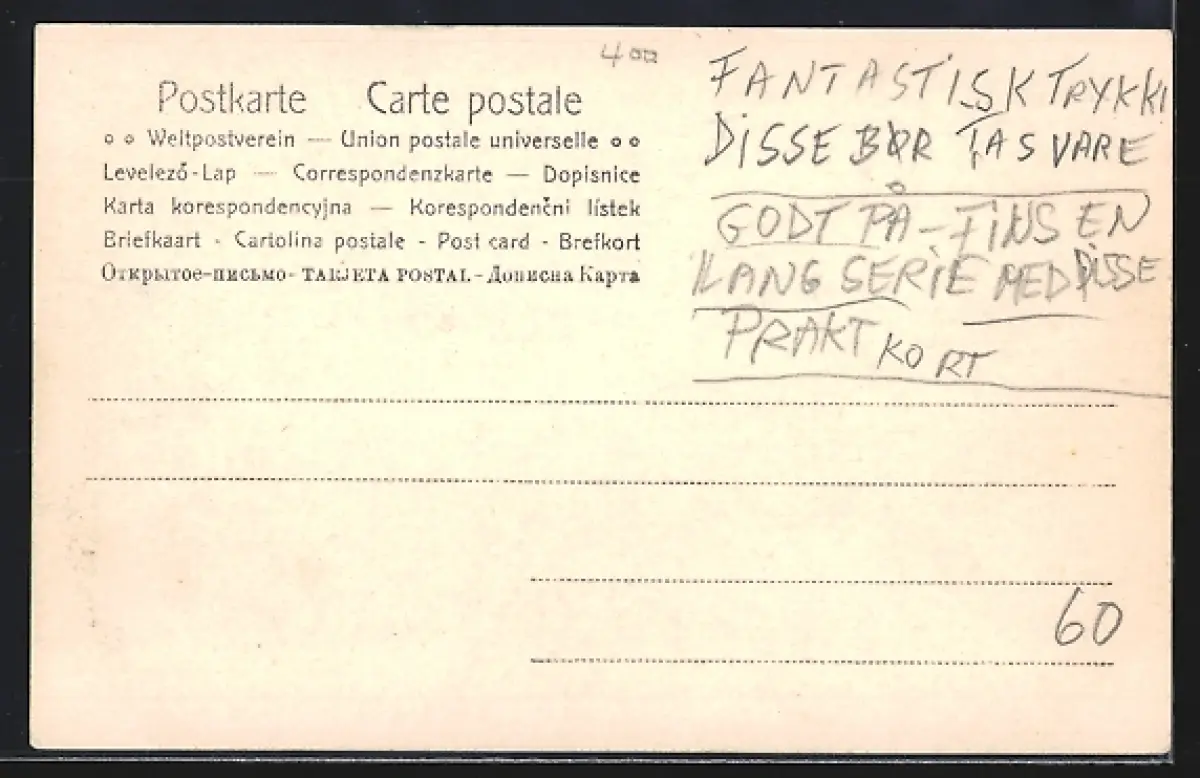 400
FANTASTISK TRYKK!
DISSE BØR TAS VARE
GODT PÅ - FINS EN
LANG SERIE MED DISSE
PRAKT KORT
Postkarte Carte postale
∘ ∘ Weltpostverein — Union postale universelle ∘ ∘
Levelező-Lap — Correspondenzkarte — Dopisnice
Karta korespondencyjna — Korespondenční lístek
Briefkaart - Cartolina postale - Post card - Brefkort
Открытое-письмо- TARJETA POSTAL - Дописна Карта
60